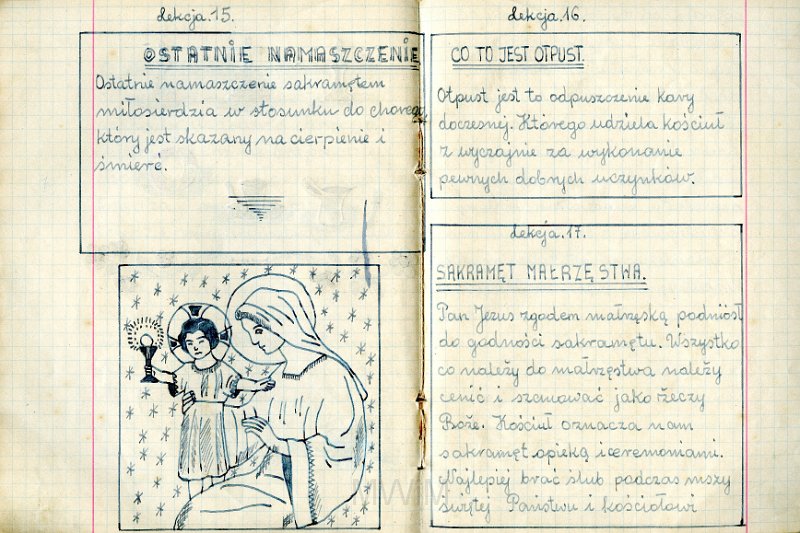 Lekcja.15.
OSTATNIE NAMASZCZENIE
Ostatnie namaszczenie sakramętem
miłosierdzia w stosunku do chorego
który jest skazany na cierpienie i
śmierć.
Lekcja.16.
CO TO JEST OTPUST.
Otpust jest to odpuszczenie kary
doczesnej. Którego udziela kościuł
z wyczajnie za wykonanie
pewnych dobrych uczynków.
Lekcja.17.
SAKRAMĘT MAŁRZĘSTWA.
Pan Jezus zgodem małrzęską podniósł
do godności sakramętu. Wszystko
co należy do małrzęstwa należy
cenić i szanować jako rzeczy
Boże. Kościuł oznacza nam
sakramęt opieką i ceremoniami.
Najlepiej brać ślub podczas mszy
świętej Państwu i kościołowi
MWM